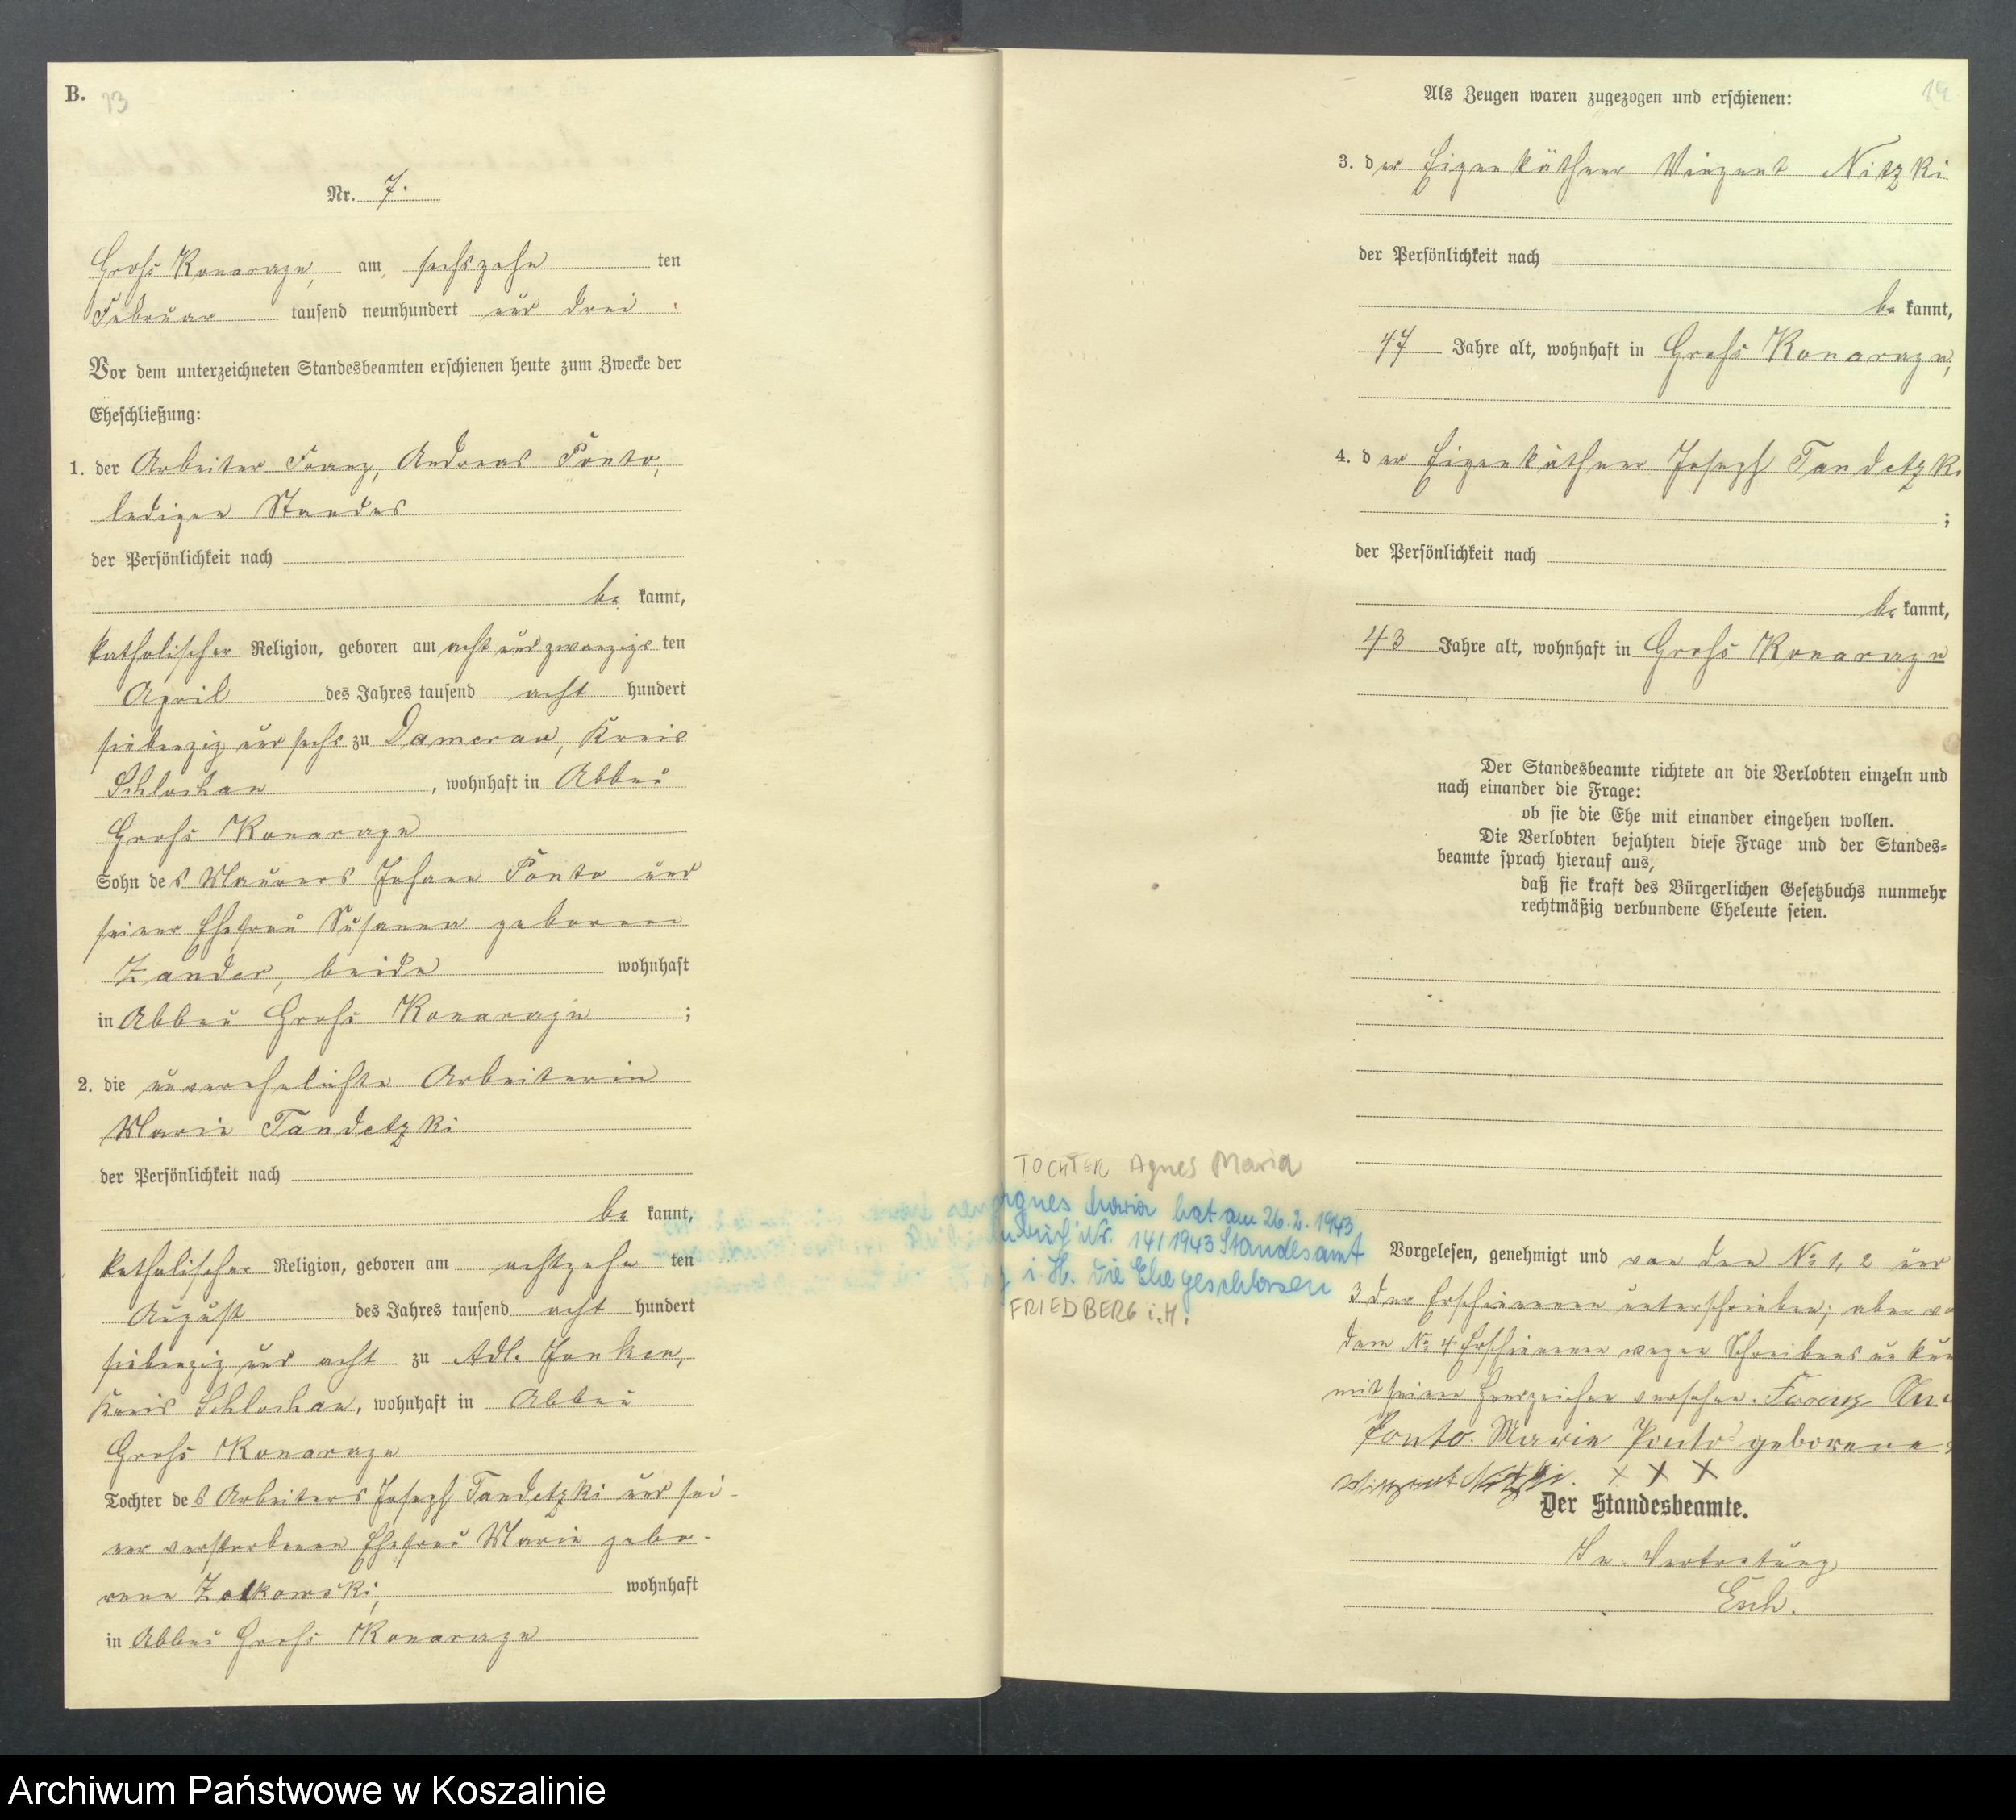 B. 13
Nr. 7.
Groß Konarzyn, am sechszehn ten
Februar tausend neunhundert und drei
Vor dem unterzeichneten Standesbeamten erschienen heute zum Zwecke der
Eheschließung:
1. der Arbeiter Franz, Andreas Ponto,
ledigen Standes
der Persönlichkeit nach
be kannt,
katholischer Religion, geboren am acht und zwanzigs ten
April des Jahres tausend acht hundert
siebenzig und sechs zu Damerau, Kreis
Schlochau, wohnhaft in Abbau
Groß Konarzyn
Sohn des Maurers Johann Ponto und
seiner Ehefrau Susanna geborenen
Zander, beide wohnhaft
in Abbau Groß Konarzyn ;
2. die unverehelichte Arbeiterin
Marie Tandetzki
der Persönlichkeit nach
be kannt,
katholischer Religion, geboren am achtzehn ten
August des Jahres tausend acht hundert
siebenzig und acht zu Adl.
Kreis Schlochau, wohnhaft in Abbau
Groß Konarzyn
Tochter des Arbeiters Joseph Tandetzki und sei-
ner verstorbenen Ehefrau Marie gebo-
rene Zolkowski, wohnhaft
in Abbau Groß Konarzyn
Als Zeugen waren zugezogen und erschienen:
3. der Eigenkäthner Vinzent Nitzki
der Persönlichkeit nach
be kannt,
47 Jahre alt, wohnhaft in Groß Konarzyn,
4. der Eigenkäthner Joseph Tandetzki
;
der Persönlichkeit nach
be kannt,
43 Jahre alt, wohnhaft in Groß Konarzyn
Der Standesbeamte richtete an die Verlobten einzeln und
nach einander die Frage:
ob sie die Ehe mit einander eingehen wollen.
Die Verlobten bejahten diese Frage und der Standes=
beamte sprach hierauf aus,
daß sie kraft des Bürgerlichen Gesetzbuchs nunmehr
rechtmäßig verbundene Eheleute seien.
TOCHTER Agnes Maria
Agnes Maria hat am 26.2.1943
Nr. 14/1943 Standesamt
i. H. die Ehe geschlossen
FRIEDBERG i.H.
Vorgelesen, genehmigt und von den No 1, 2 und
3 der Erschienenen unterschrieben; aber
dem No 4 Erschienenen wegen Schreibens
mit seinem Handzeichen versehen. Franz
Ponto. Marie Ponto geborene
Vinzent Nitzki. X X X
Der Standesbeamte.
In Vertretung
Esch.
Archiwum Państwowe w Koszalinie